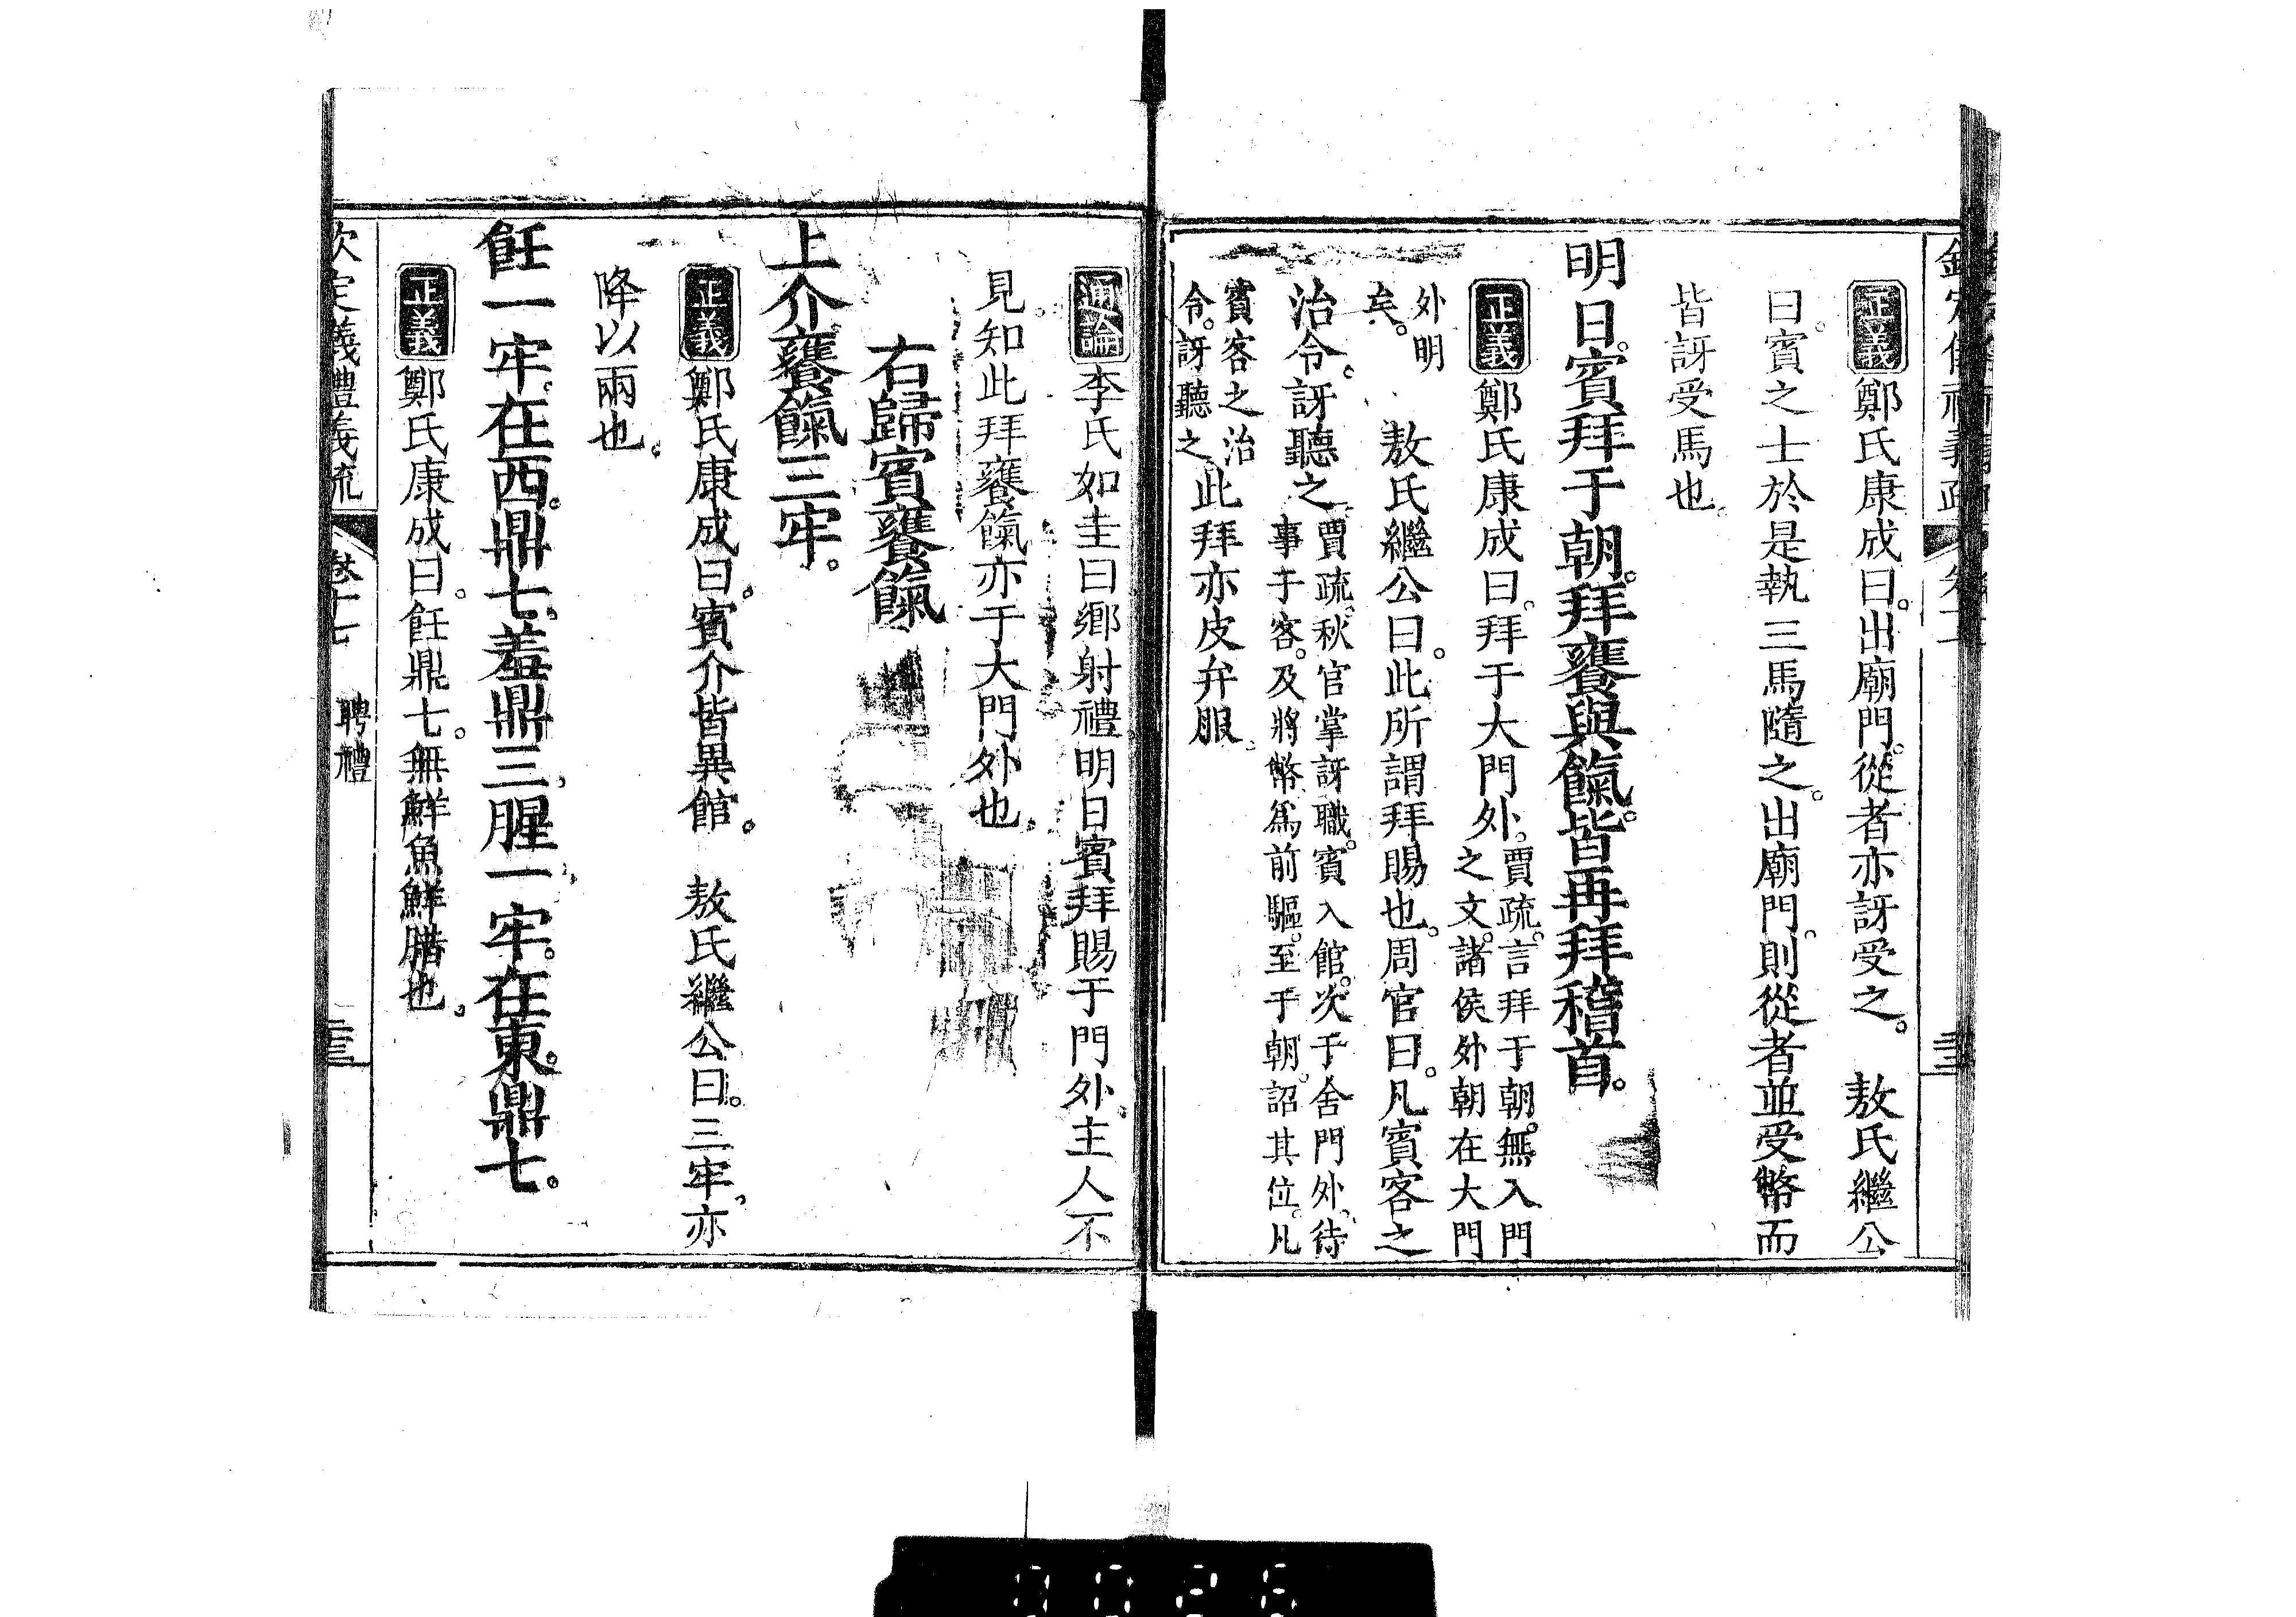 正義鄭氏康成曰。出廟門。從者亦訝受之。　敖氏繼公
曰。賓之士於是執三馬隨之。出廟門。則從者並受幣而
皆訝受馬也。
明日。賓拜于朝。拜饔與餼。皆再拜稽首。
正義鄭氏康成曰。拜于大門外。賈疏。言拜于朝。無入門
之文。諸侯外朝在大門
外明
矣。　敖氏繼公曰。此所謂拜賜也。周官曰。凡賓客之
治令。訝聽之。賈疏。秋官掌訝職。賓入館。次于舍門外。待
事于客。及將幣爲前驅。至于朝。詔其位。凡
賓客之治
令。訝聽之此拜亦皮弁服。
通論李氏如圭曰鄉射禮明日賓拜賜于門外。主人不
見。知此拜饔餼亦于大門外也。
右歸賓饔餼
上介。饔餼三牢。
正義鄭氏康成曰。賓介皆異館。　敖氏繼公曰。三牢。亦
降以兩也。
飪一牢。在西。鼎七。羞鼎三。腥一牢。在東。鼎七。
正義鄭氏康成曰。飪鼎七。無鮮魚鮮腊也。
欽定義禮義疏　卷十七　聘禮